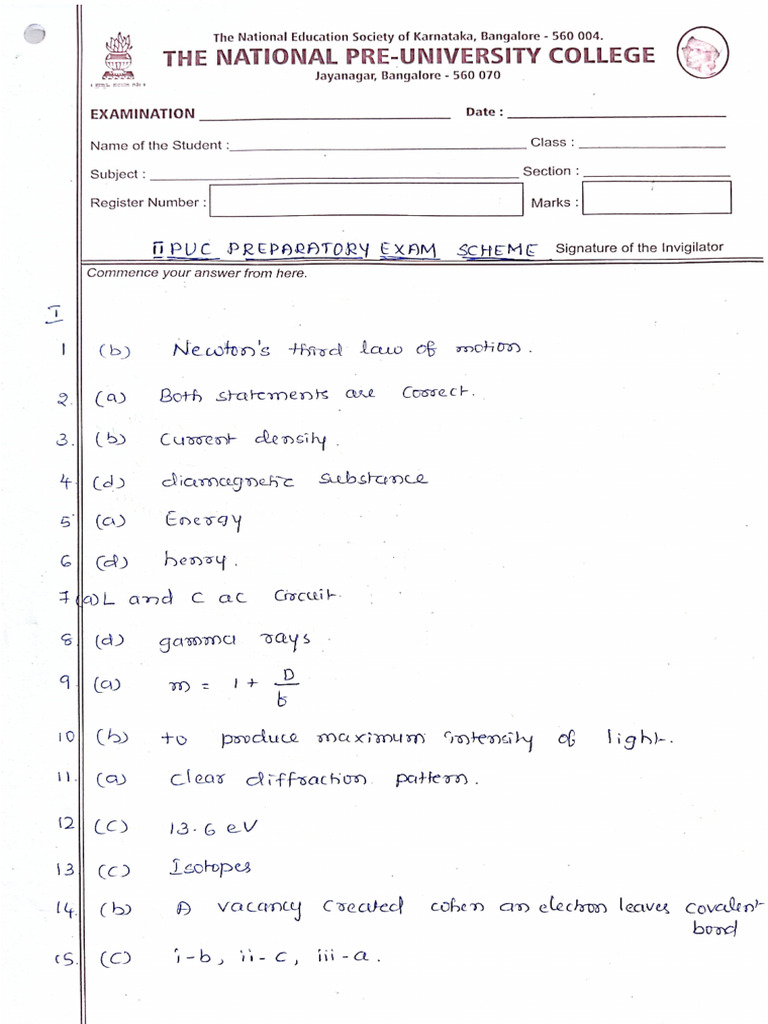 The National Education Society of Karnataka, Bangalore - 560 004.
THE NATIONAL PRE-UNIVERSITY COLLEGE
Jayanagar, Bangalore - 560 070
EXAMINATION Date :
Name of the Student : Class :
Subject : Section :
Register Number : Marks :
II PUC PREPARATORY EXAM SCHEME Signature of the Invigilator
Commence your answer from here.
I
1 (b) Newton's third law of motion.
2. (a) Both statements are correct.
3. (b) Current density.
4 (d) diamagnetic substance
5 (a) Energy
6 (d) henry.
7 (a) L and C ac Circuit.
8. (d) gamma rays
9 (a) m = 1 + D/f
10 (b) to produce maximum intensity of light.
11. (a) clear diffraction pattern.
12 (c) 13.6 eV
13 (c) Isotopes
14. (b) A vacancy created when an electron leaves covalent
bond
15. (c) i-b, ii-c, iii-a.